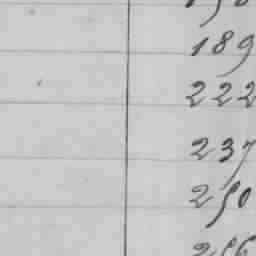 189
222
237
250
256